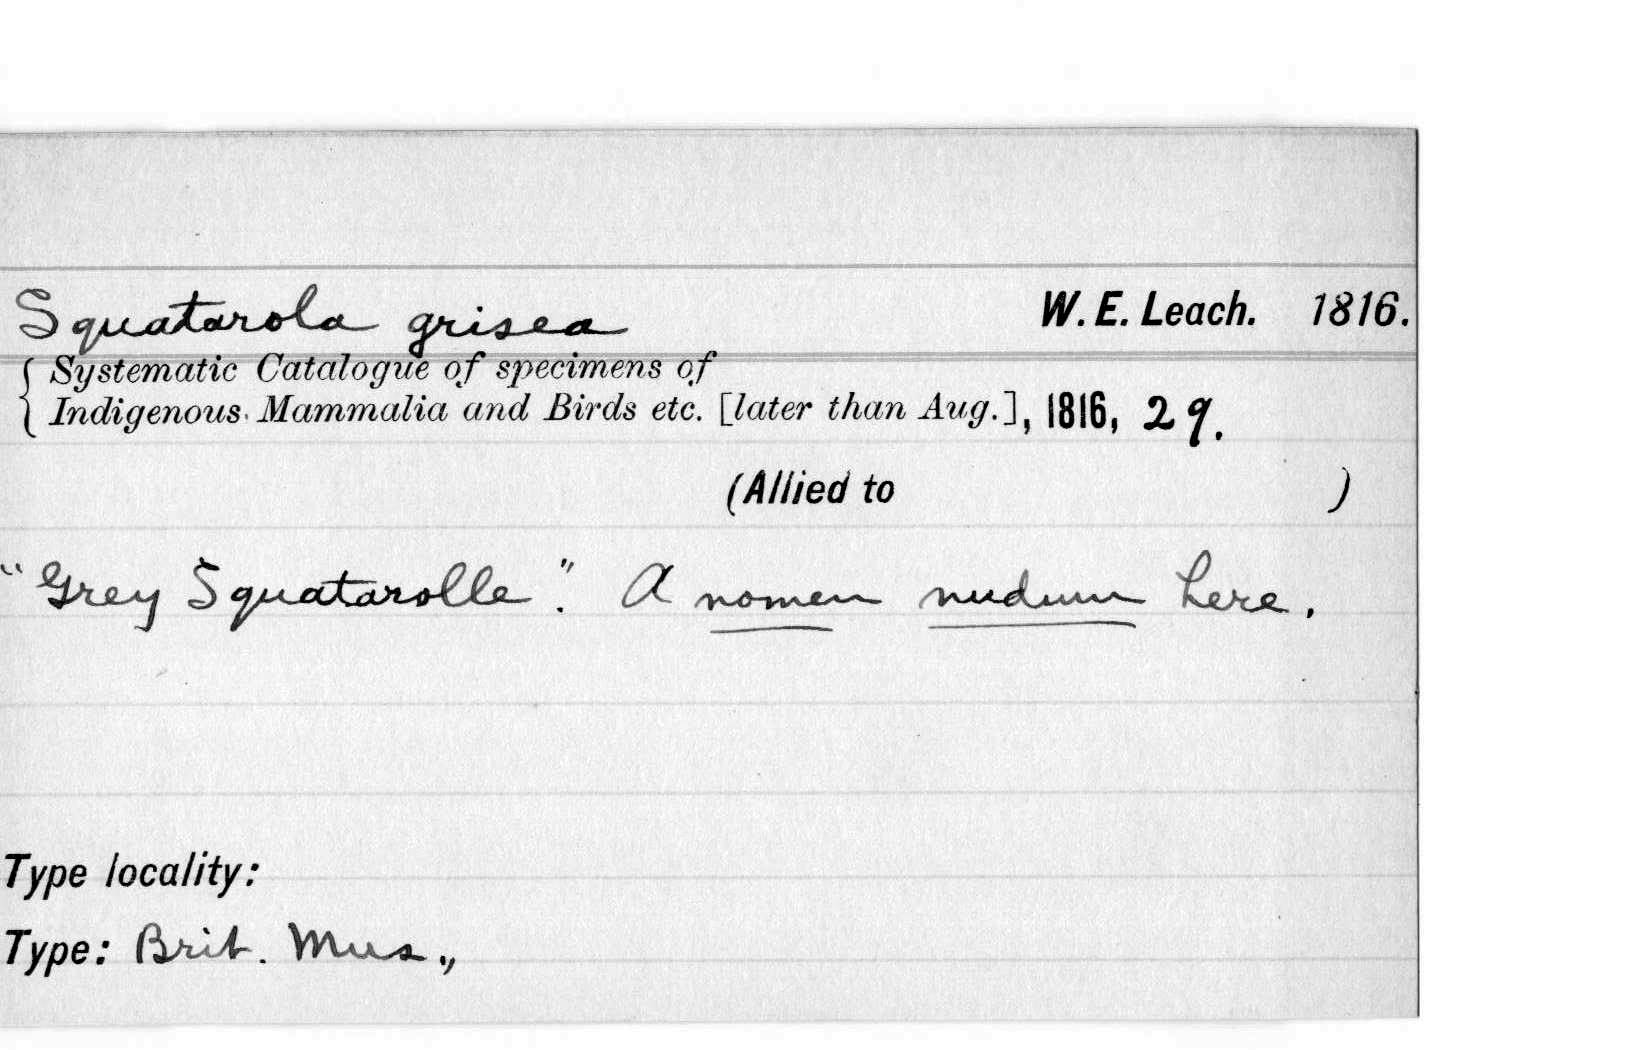 Squatarola grisea W. E. Leach. 1816.
{ Systematic Catalogue of specimens of
Indigenous Mammalia and Birds etc. [later than Aug.], 1816, 29.
(Allied to )
"Grey Squatarolle". A nomen nudum here.
Type locality:
Type: Brit. Mus.,